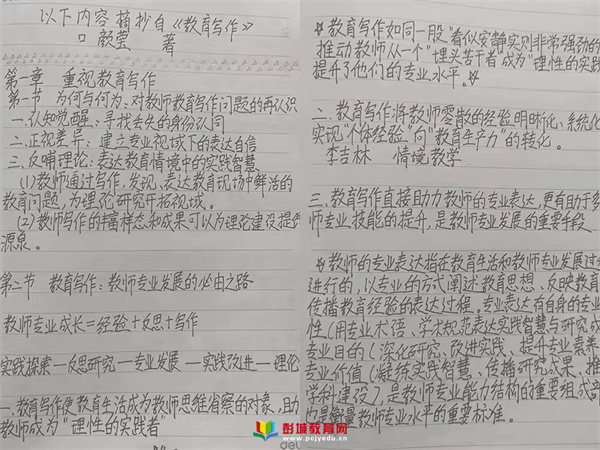 以下内容摘抄自《教育写作》
口 颜莹 著
第一章 重视教育写作
第一节 为何与何为:对教师教育写作问题的再认识
一.认知觉醒:寻找丢失的身份认同
二.正视差异:建立专业视域下的表达自信
三.反哺理论:表达教育情境中的实践智慧
(1)教师通过写作,发现、表达教育现场中鲜活的
教育问题,为理论研究开拓视域。
(2)教师写作的丰富样态和成果可以为理论建设提供
源泉。
第二节 教育写作:教师专业发展的必由之路
教师专业成长=经验+反思+写作
实践探索—反思研究—专业发展—实践改进—理论
一.教育写作使教育生活成为教师思维省察的对象,助
教师成为“理性的实践者”
☆教育写作如同一股“看似安静实则非常强劲的
推动教师从一个“埋头苦干者”成为“理性的实践
提升了他们的专业水平。☆
二.教育写作将教师零散的经验明晰化、系统化
实现“个体经验”向“教育生产力”的转化。
李吉林 情境教学
三.教育写作直接助力教师的专业表达,更有助于
师专业技能的提升,是教师专业发展的重要手段
☆教师的专业表达指在教育生活和教师专业发展过
进行的,以专业的方式阐述教育思想、反映教育
传播教育经验的表达过程,专业表达有自身的专业
性(用专业术语、学术规范表达实践智慧与研究成
专业目的(深化研究、改进实践、提升专业素养
专业价值(凝练实践智慧、传播研究成果、推
学科建设),是教师专业能力结构的重要组成部
也是衡量教师专业水平的重要标准。
彭城教育网
www.pcjyedu.cn